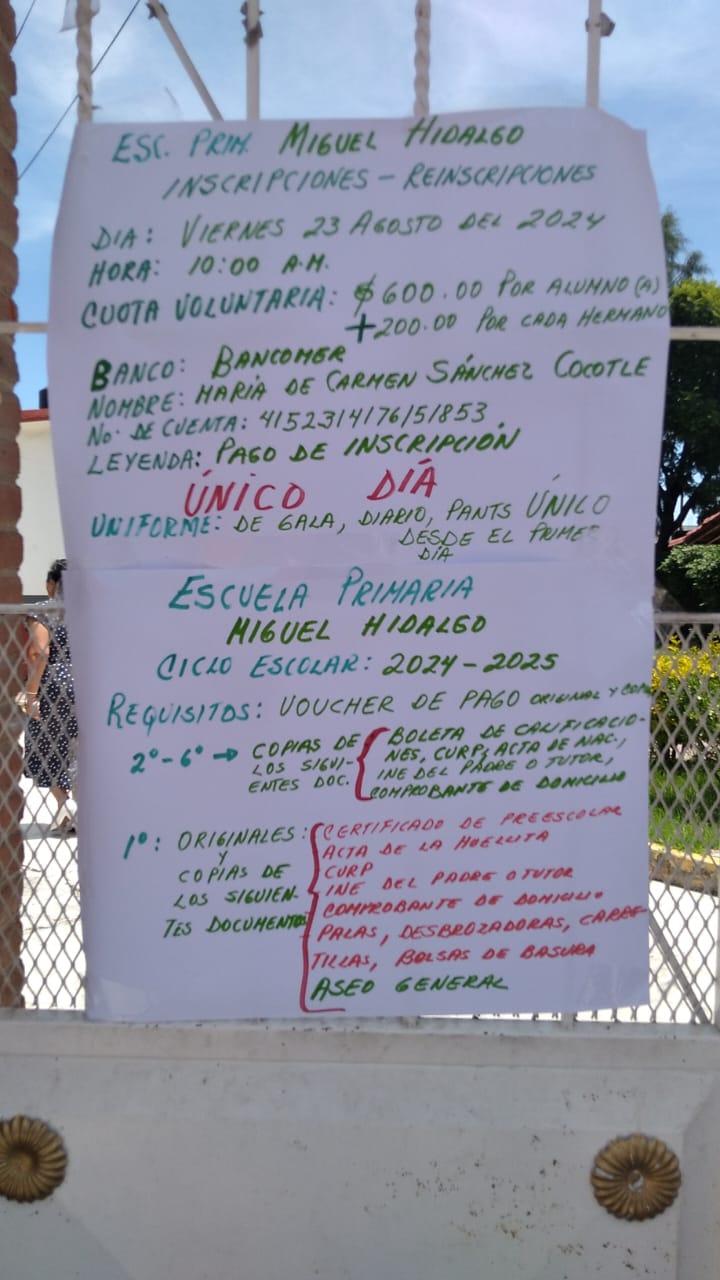 ESC. PRIM. MIGUEL HIDALGO
INSCRIPCIONES - REINSCRIPCIONES
DIA: VIERNES 23 AGOSTO DEL 2024
HORA: 10:00 A.M.
CUOTA VOLUNTARIA: $600.00 POR ALUMNO(A)
+200.00 POR CADA HERMANO
BANCO: BANCOMER
NOMBRE: MARÍA DE CARMEN SÁNCHEZ COCOTLE
No. DE CUENTA: 4152314176151853
LEYENDA: PAGO DE INSCRIPCIÓN
ÚNICO DÍA
UNIFORME: DE GALA, DIARIO, PANTS ÚNICO
DESDE EL PRIMER
DÍA
ESCUELA PRIMARIA
MIGUEL HIDALGO
CICLO ESCOLAR: 2024-2025
REQUISITOS: VOUCHER DE PAGO ORIGINAL Y COPIA
2°-6° → COPIAS DE LOS SIGUI-ENTES DOC. { BOLETA DE CALIFICACIO-
NES, CURP, ACTA DE NAC,
INE DEL PADRE O TUTOR,
COMPROBANTE DE DOMICILIO
1°: ORIGINALES: { CERTIFICADO DE PREESCOLAR
Y ACTA DE LA HUELLITA
COPIAS DE CURP
LOS SIGUIEN- INE DEL PADRE O TUTOR
TES DOCUMENTOS COMPROBANTE DE DOMICILIO
PALAS, DESBROZADORAS, CARRE-
TILLAS, BOLSAS DE BASURA
ASEO GENERAL